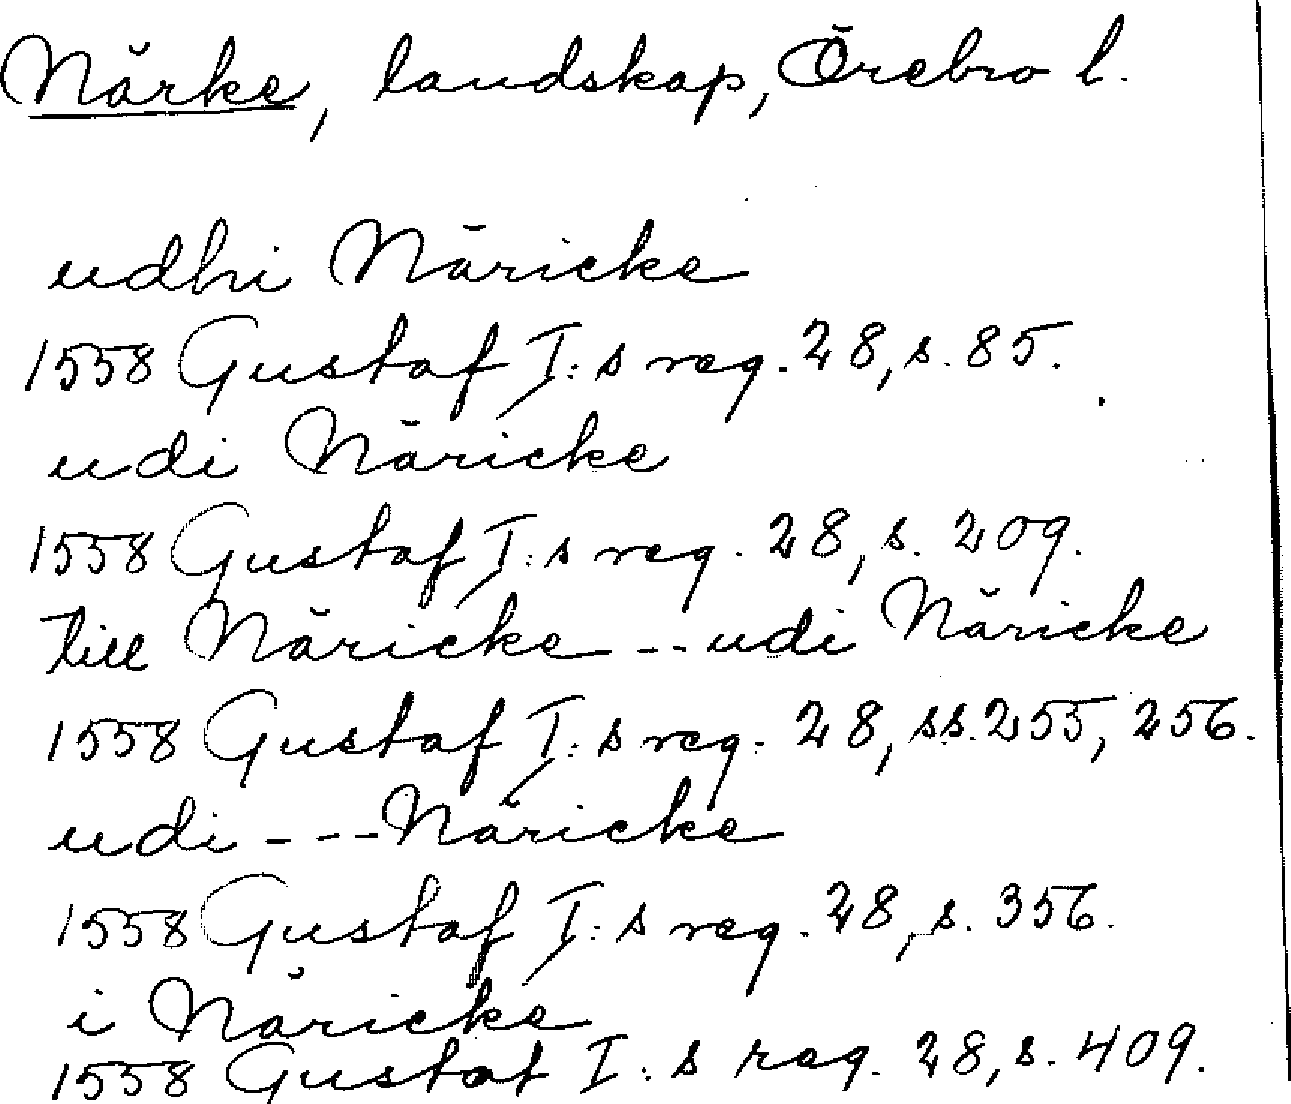 Närke, landskap, Örebro l.
udhi Näricke
1558 Gustaf I:s reg. 28, s. 85.
udi Näricke
1558 Gustaf I:s reg. 28, s. 209.
till Näricke - - udi Näricke
1558 Gustaf I:s reg. 28, ss. 255, 256.
udi - - - Näricke
1558 Gustaf I:s reg. 28, s. 356.
i Näricke
1558 Gustaf I:s reg. 28, s. 409.